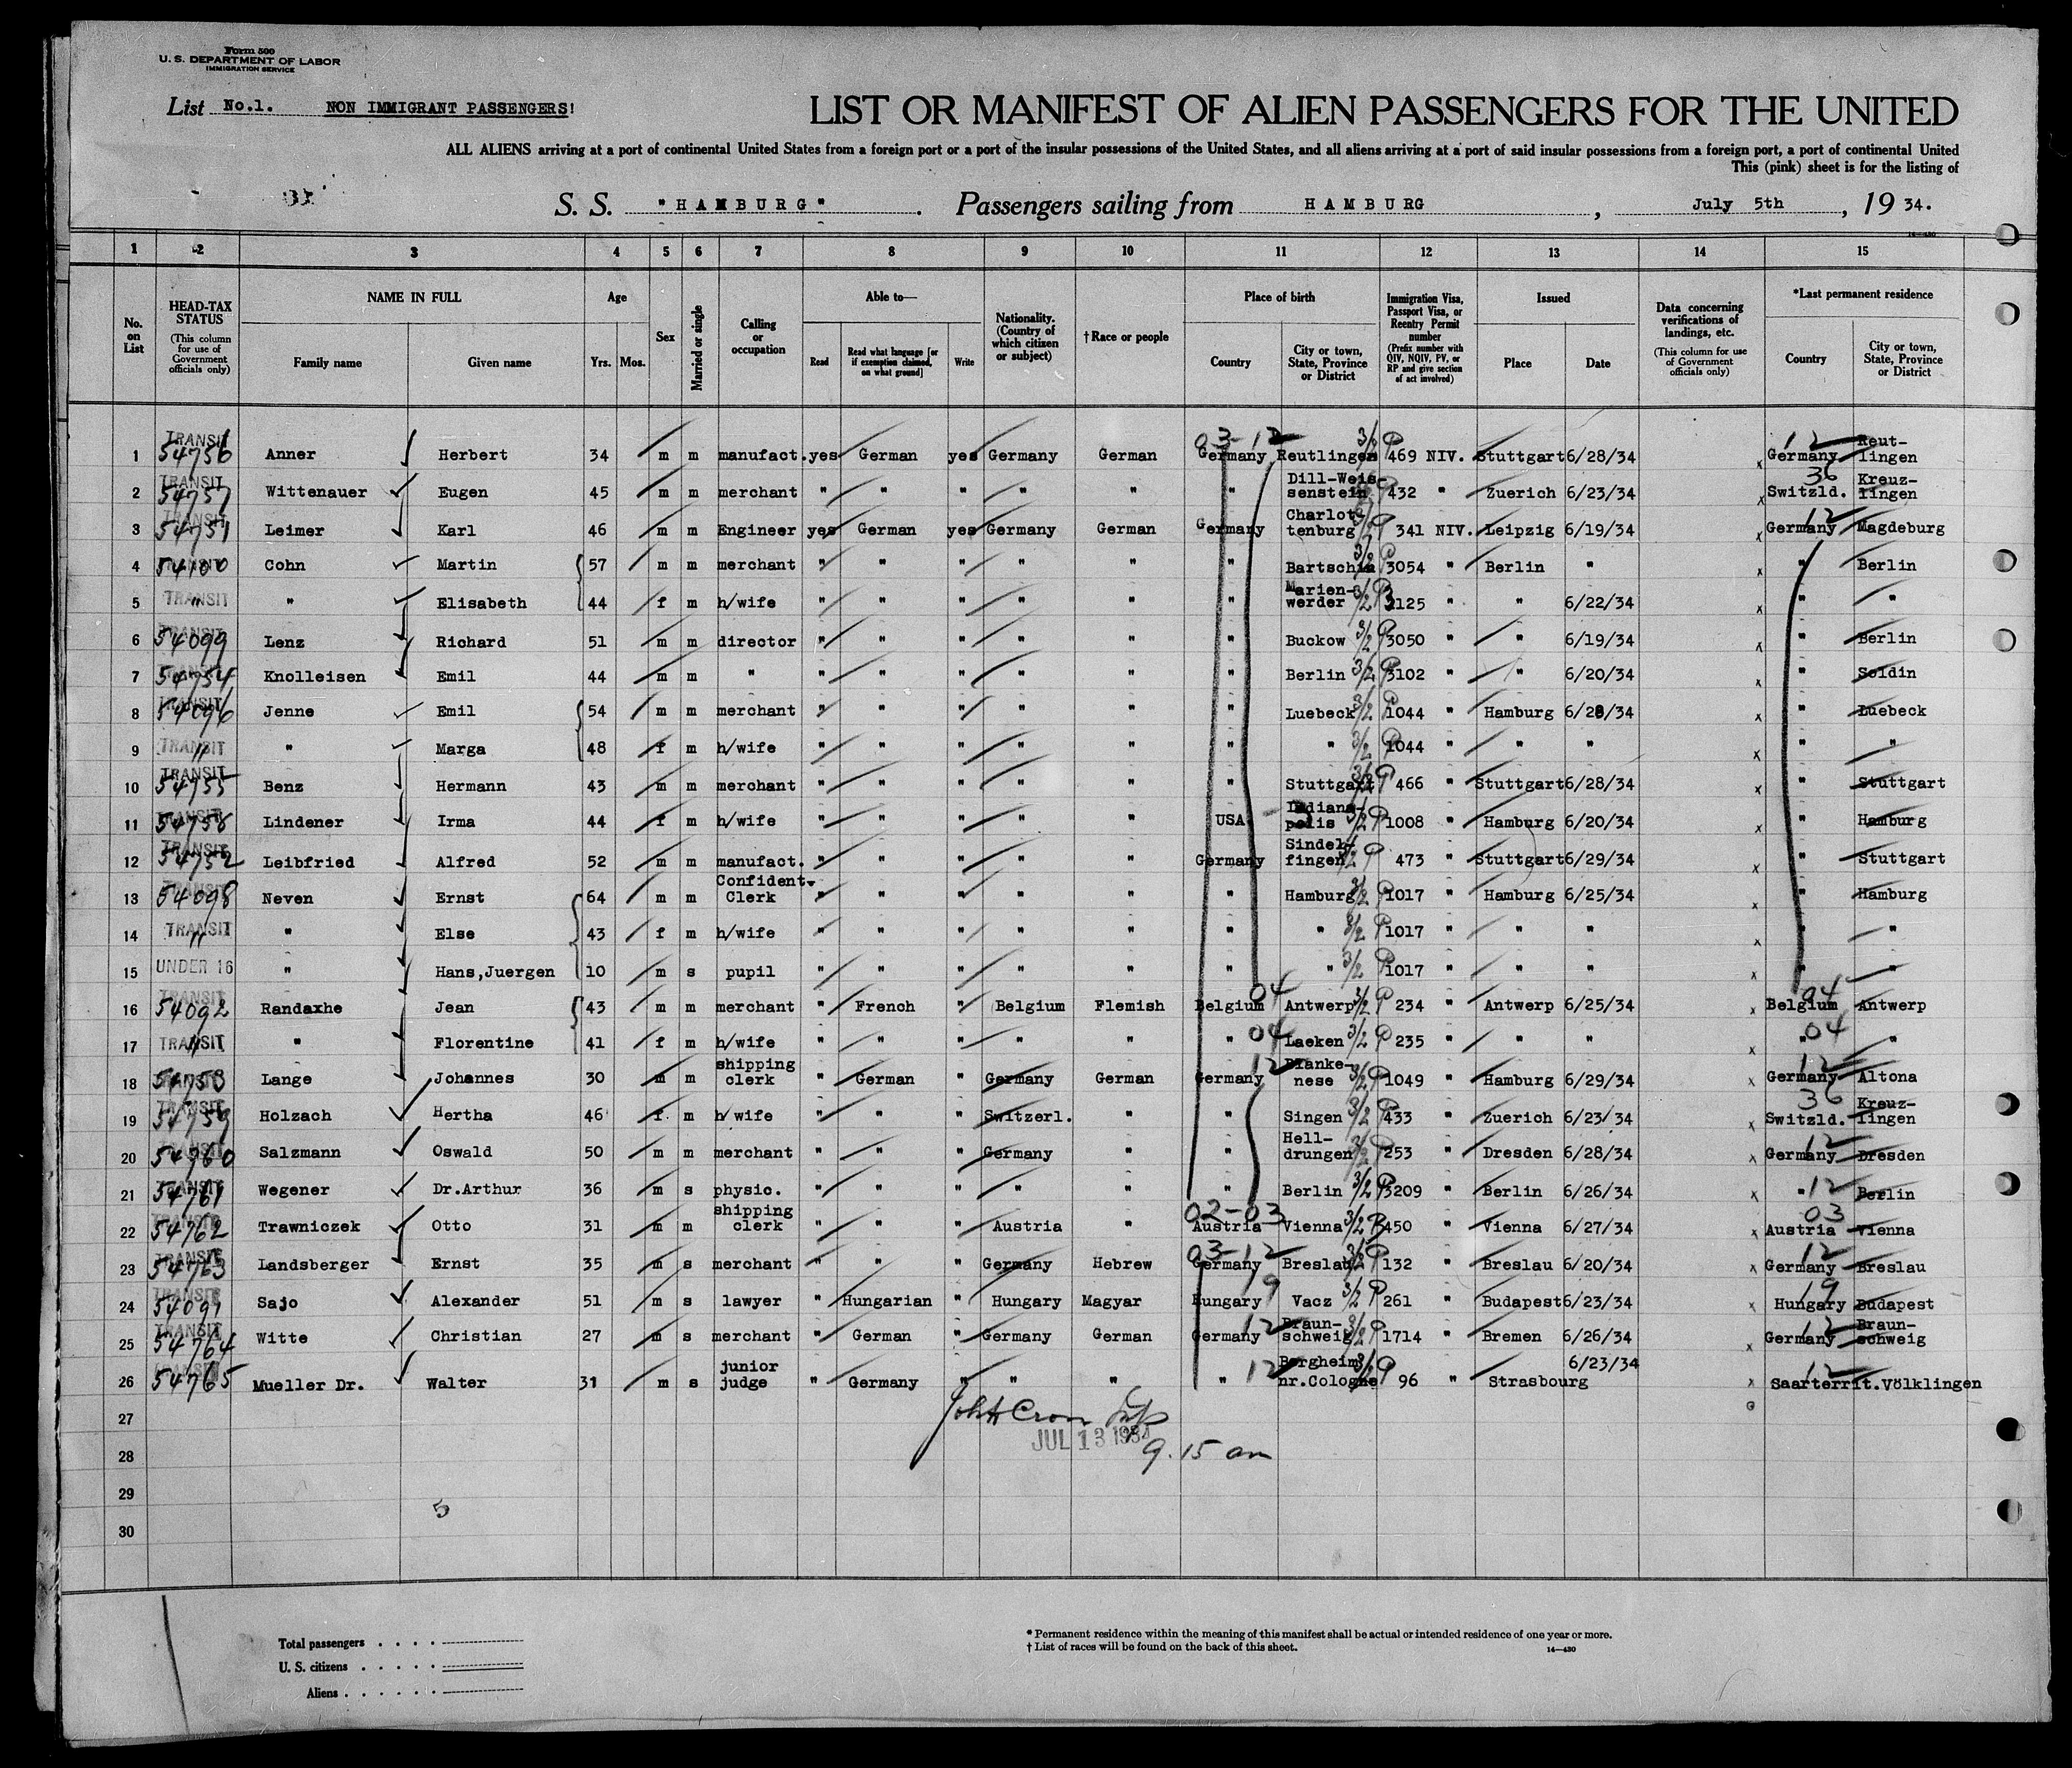 Form 500
U. S. DEPARTMENT OF LABOR
IMMIGRATION SERVICE
List No.1. NON IMMIGRANT PASSENGERS!
LIST OR MANIFEST OF ALIEN PASSENGERS FOR THE UNITED
ALL ALIENS arriving at a port of continental United States from a foreign port or a port of the insular possessions of the United States, and all aliens arriving at a port of said insular possessions from a foreign port, a port of continental United
This (pink) sheet is for the listing of
S. S. "HAMBURG". Passengers sailing from HAMBURG, July 5th, 19 34.
14—430
1 2 3 4 5 6 7 8 9 10 11 12 13 14 15
No. on List
HEAD-TAX STATUS (This column for use of Government officials only)
NAME IN FULL Family name Given name
Age Yrs. Mos.
Sex
Married or single
Calling or occupation
Able to— Read Read what language [or if exemption claimed, on what ground] Write
Nationality. (Country of which citizen or subject)
† Race or people
Place of birth Country City or town, State, Province or District
Immigration Visa, Passport Visa, or Reentry Permit number (Prefix number with QIV, NQIV, PV, or RP and give section of act involved)
Issued Place Date
Data concerning verifications of landings, etc. (This column for use of Government officials only)
*Last permanent residence Country City or town, State, Province or District
1 TRANSIT 54756 Anner Herbert 34 m m manufact. yes German yes Germany German 03-12 Germany Reutlingen 3/2 P 469 NIV. Stuttgart 6/28/34 x 12 Germany Reut-lingen
2 TRANSIT 54757 Wittenauer Eugen 45 m m merchant " " " " " " Dill-Weis-senstein P 432 " Zuerich 6/23/34 x 36 Switzld. Kreuz-lingen
3 TRANSIT 54751 Leimer Karl 46 m m Engineer yes German yes Germany German Germany Charlot-tenburg P 341 NIV. Leipzig 6/19/34 x 12 Germany Magdeburg
4 TRANSIT 54100 Cohn Martin 57 m m merchant " " " " " " Bartschin 3/2 P 3054 " Berlin " x " Berlin
5 TRANSIT " " Elisabeth 44 f m h/wife " " " " " " Marien-werder 3/2 P 3125 " " 6/22/34 x " "
6 TRANSIT 54099 Lenz Richard 51 m m director " " " " " " Buckow 3/2 P 3050 " " 6/19/34 x " Berlin
7 TRANSIT 54754 Knolleisen Emil 44 m m " " " " " " " Berlin 3/2 P 3102 " " 6/20/34 x " Soldin
8 TRANSIT 54096 Jenne Emil 54 m m merchant " " " " " " Luebeck 3/2 P 1044 " Hamburg 6/28/34 x " Luebeck
9 TRANSIT " " Marga 48 f m h/wife " " " " " " " 3/2 P 1044 " " " x " "
10 TRANSIT 54755 Benz Hermann 43 m m merchant " " " " " " Stuttgart 3/2 P 466 " Stuttgart 6/28/34 x " Stuttgart
11 TRANSIT 54758 Lindener Irma 44 f m h/wife " " " " " USA Indiana-polis 3/2 P 1008 " Hamburg 6/20/34 x " Hamburg
12 TRANSIT 54752 Leibfried Alfred 52 m m manufact. " " " " " Germany Sindel-fingen 3/2 P 473 " Stuttgart 6/29/34 x " Stuttgart
13 TRANSIT 54098 Neven Ernst 64 m m Confident. Clerk " " " " " " Hamburg 3/2 P 1017 " Hamburg 6/25/34 x " Hamburg
14 TRANSIT " " Else 43 f m h/wife " " " " " " " 3/2 P 1017 " " " x " "
15 UNDER 16 " Hans,Juergen 10 m s pupil " " " " " " " 3/2 P 1017 " " " x " "
16 TRANSIT 54092 Randaxhe Jean 43 m m merchant " French " Belgium Flemish Belgium 04 Antwerp 3/2 P 234 " Antwerp 6/25/34 x 04 Belgium Antwerp
17 TRANSIT " " Florentine 41 f m h/wife " " " " " " 04 Laeken 3/2 P 235 " " " x " 04 "
18 TRANSIT 54753 Lange Johannes 30 m m shipping clerk " German " Germany German Germany 12 Blanke-nese 3/2 P 1049 " Hamburg 6/29/34 x 12 Germany Altona
19 TRANSIT 54759 Holzach Hertha 46 f m h/wife " " " Switzerl. " " Singen 3/2 P 433 " Zuerich 6/23/34 x 36 Switzld. Kreuz-lingen
20 TRANSIT 54760 Salzmann Oswald 50 m m merchant " " " Germany " " Hell-drungen 3/2 P 253 " Dresden 6/28/34 x 12 Germany Dresden
21 TRANSIT 54761 Wegener Dr.Arthur 36 m s physic. " " " " " " Berlin 3/2 P 3209 " Berlin 6/26/34 x " 12 Berlin
22 TRANSIT 54762 Trawniczek Otto 31 m m shipping clerk " " " Austria " 02-03 Austria Vienna 3/2 P 450 " Vienna 6/27/34 x 03 Austria Vienna
23 TRANSIT 54763 Landsberger Ernst 35 m s merchant " " " Germany Hebrew 03-12 Germany Breslau 3/2 P 132 " Breslau 6/20/34 x 12 Germany Breslau
24 TRANSIT 54091 Sajo Alexander 51 m s lawyer " Hungarian " Hungary Magyar Hungary 19 Vacz 3/2 P 261 " Budapest 6/23/34 x 19 Hungary Budapest
25 TRANSIT 54764 Witte Christian 27 m s merchant " German " Germany German Germany 12 Braun-schweig 3/2 P 1714 " Bremen 6/26/34 x 12 Germany Braun-schweig
26 TRANSIT 54765 Mueller Dr. Walter 31 m s junior judge " Germany " " " " 12 Bergheim nr.Cologne 3/2 P 96 " Strasbourg 6/23/34 x 12 Saarterrit. Völklingen
27
JUL 13 1934
9.15 am
28
29
5
30
Total passengers . . . .
U. S. citizens . . . . .
Aliens . . . . . .
* Permanent residence within the meaning of this manifest shall be actual or intended residence of one year or more.
† List of races will be found on the back of this sheet.
14—430